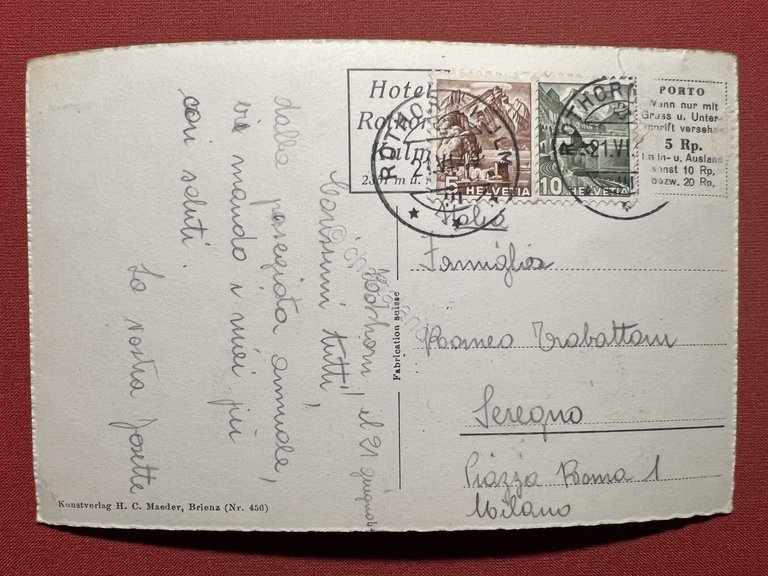 Rothorn il 21 giugno
Carissimi tutti!
dalla passegiata annuale,
vi mando i miei più
cari saluti.
La vostra Josette
Hotel
Rothorn
Kulm
ROTHORN KULM
21.VI
HELVETIA
10 HELVETIA
ROTHORN
21.VI
PORTO
Wenn nur mit
Gruss u. Unter-
schrift versehen
5 Rp.
im In- u. Ausland
sonst 10 Rp.
bezw. 20 Rp.
Italia
Famiglia
Romeo Trabattoni
Seregno
Piazza Roma 1
Milano
Fabrication suisse
Kunstverlag H. C. Maeder, Brienz (Nr. 456)